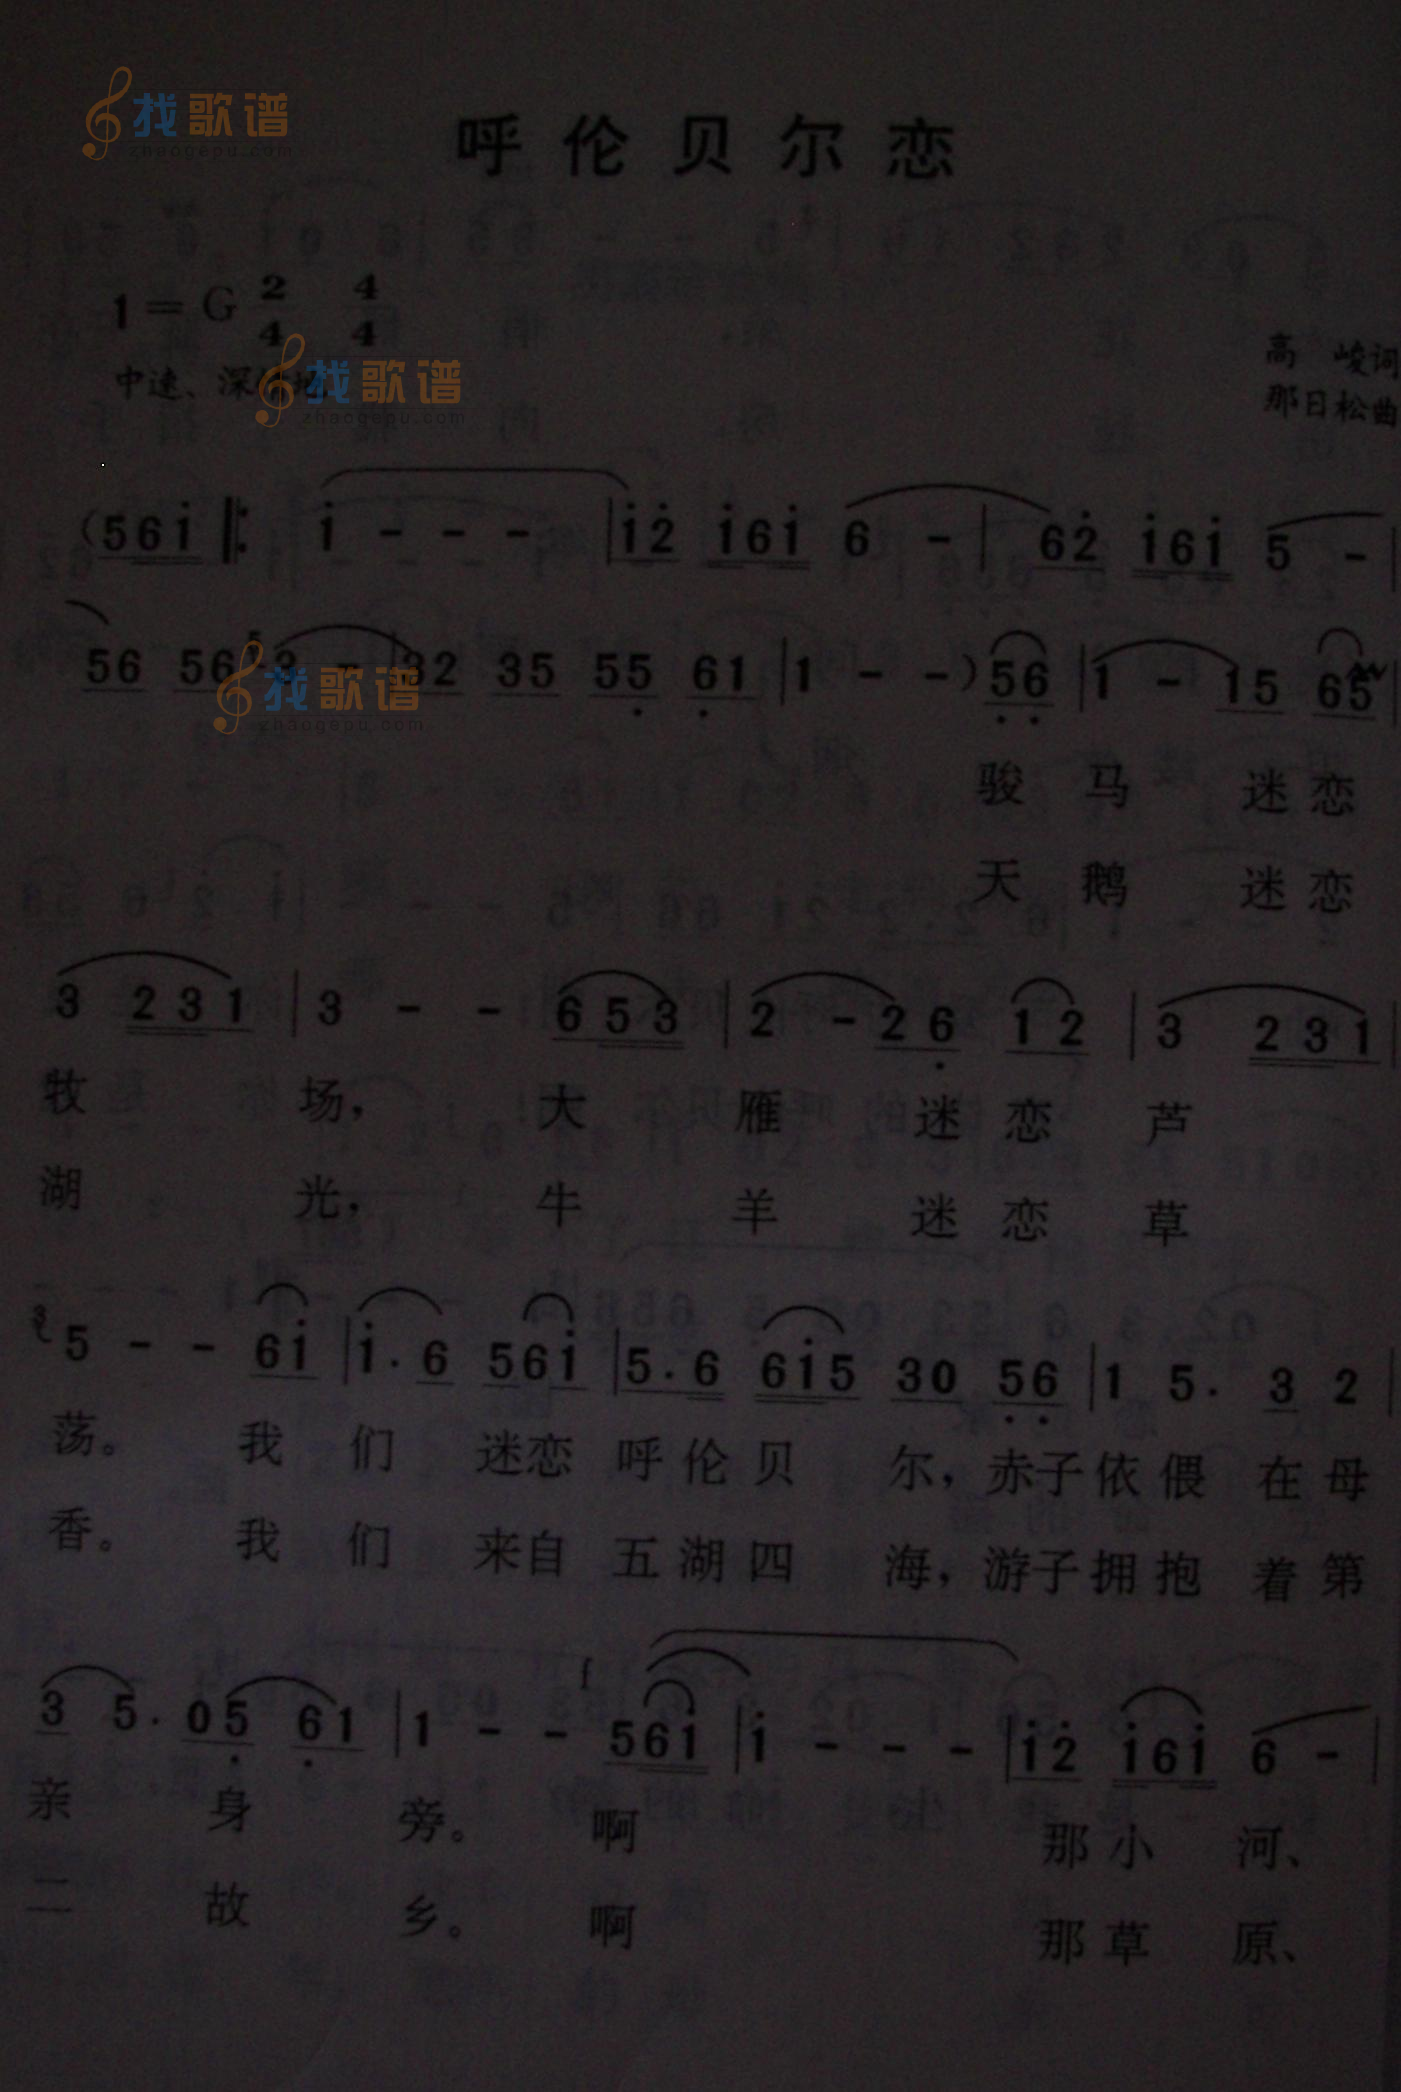 找歌谱
zhaogepu.com
呼伦贝尔恋
1=G 2/4 4/4
中速、深情地
高 峻词
那日松曲
找歌谱
zhaogepu.com
(561̇ ‖: 1̇ - - - | 1̇2̇ 1̇61̇ 6 - | 62̇ 1̇61̇ 5 - |
56 56 3 - | 32 35 55̣ 6̣1 | 1 - - ) 5̣6̣ | 1 - 15 65 |
找歌谱
zhaogepu.com
骏 马 迷 恋
天 鹅 迷 恋
3 231 | 3 - - 653 | 2 - 26̣ 12 | 3 231 |
牧 场, 大 雁 迷 恋 芦
湖 光, 牛 羊 迷 恋 草
5 - - 61̇ | 1̇. 6 561̇ | 5. 6 61̇5 30 5̣6̣ | 1 5. 3 2 |
荡。 我 们 迷恋 呼 伦 贝 尔, 赤子 依 偎 在 母
香。 我 们 来自 五 湖 四 海, 游子 拥 抱 着 第
3 5. 05̣ 6̣1 | 1 - - 561̇ | 1̇ - - - | 1̇2̇ 1̇61̇ 6 - |
亲 身 旁。 啊 那 小 河、
二 故 乡。 啊 那 草 原、